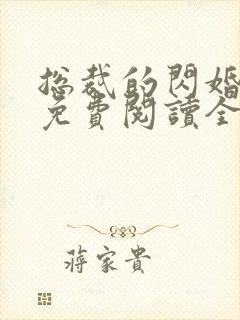 总裁的閃婚
免費閱讀全
蔣家貴